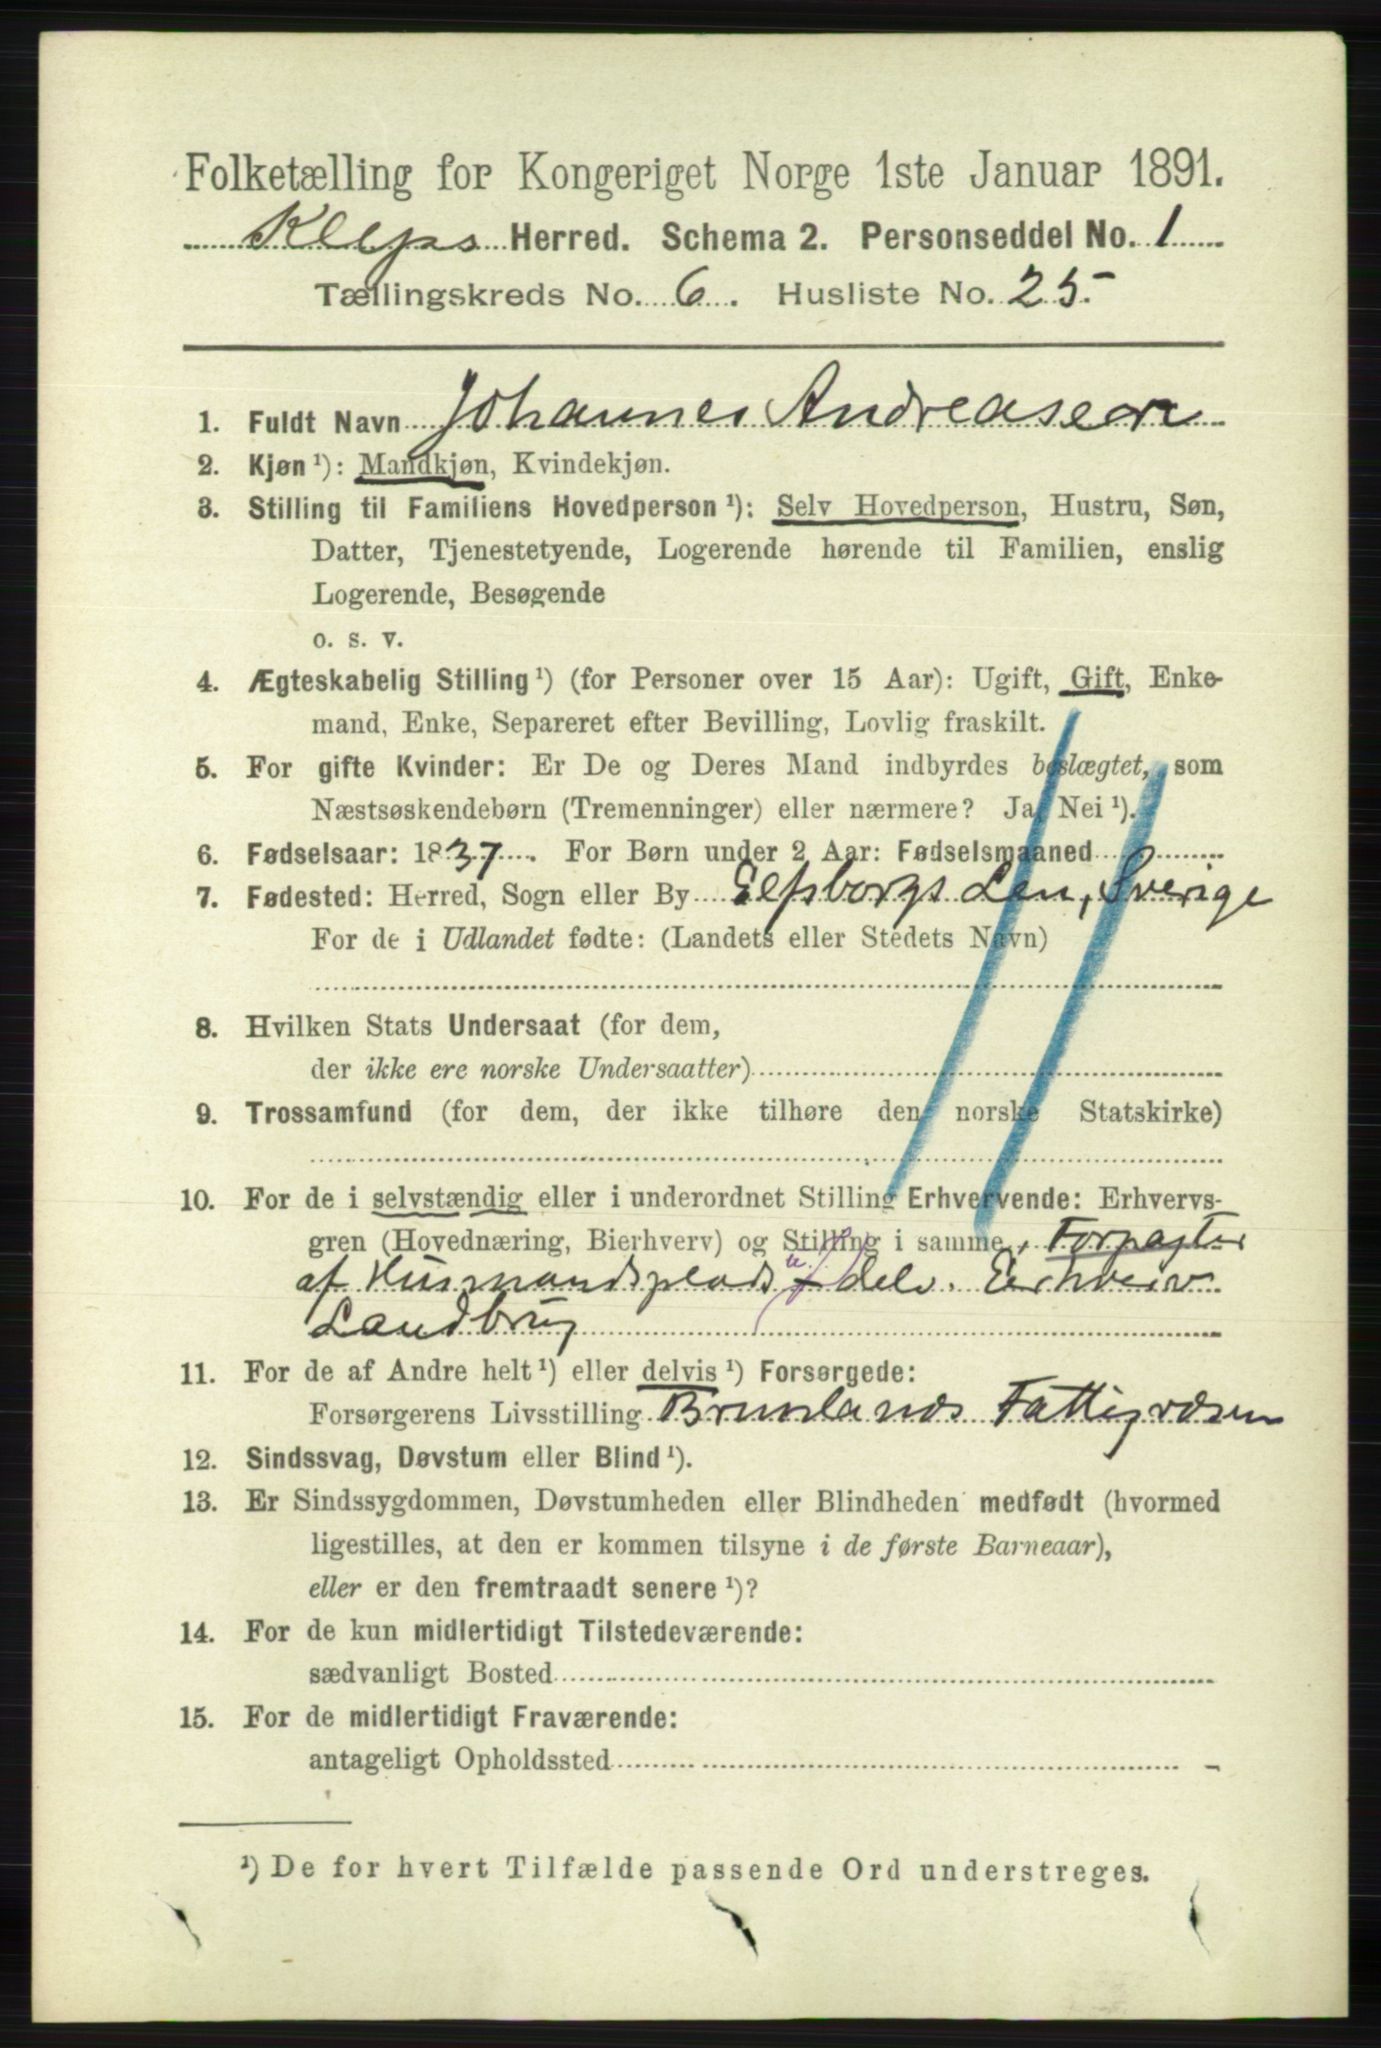 Folketælling for Kongeriget Norge 1ste Januar 1891.
Kleps Herred. Schema 2. Personseddel No. 1
Tællingskreds No. 6. Husliste No. 25.
1. Fuldt Navn Johannes Andreasen
2. Kjøn ¹): Mandkjøn, Kvindekjøn.
3. Stilling til Familiens Hovedperson ¹): Selv Hovedperson, Hustru, Søn,
Datter, Tjenestetyende, Logerende hørende til Familien, enslig
Logerende, Besøgende
o. s. v.
4. Ægteskabelig Stilling ¹) (for Personer over 15 Aar): Ugift, Gift, Enke-
mand, Enke, Separeret efter Bevilling, Lovlig fraskilt.
5. For gifte Kvinder: Er De og Deres Mand indbyrdes beslægtet, som
Næstsøskendebørn (Tremenninger) eller nærmere? Ja, Nei ¹).
6. Fødselsaar: 1837. For Børn under 2 Aar: Fødselsmaaned
7. Fødested: Herred, Sogn eller By Elfsborgs Len, Sverige
For de i Udlandet fødte: (Landets eller Stedets Navn)
8. Hvilken Stats Undersaat (for dem,
der ikke ere norske Undersaatter)
9. Trossamfund (for dem, der ikke tilhøre den norske Statskirke)
10. For de i selvstændig eller i underordnet Stilling Erhvervende: Erhvervs-
gren (Hovednæring, Bierhverv) og Stilling i samme, Forpagter
af Husmandsplads u. J delv. Erhverv
Landbrug
11. For de af Andre helt ¹) eller delvis ¹) Forsørgede:
Forsørgerens Livsstilling Brunlanæs Fattigvæsen
12. Sindssvag, Døvstum eller Blind ¹).
13. Er Sindssygdommen, Døvstumheden eller Blindheden medfødt (hvormed
ligestilles, at den er kommen tilsyne i de første Barneaar),
eller er den fremtraadt senere ¹)?
14. For de kun midlertidigt Tilstedeværende:
sædvanligt Bosted
15. For de midlertidigt Fraværende:
antageligt Opholdssted
¹) De for hvert Tilfælde passende Ord understreges.